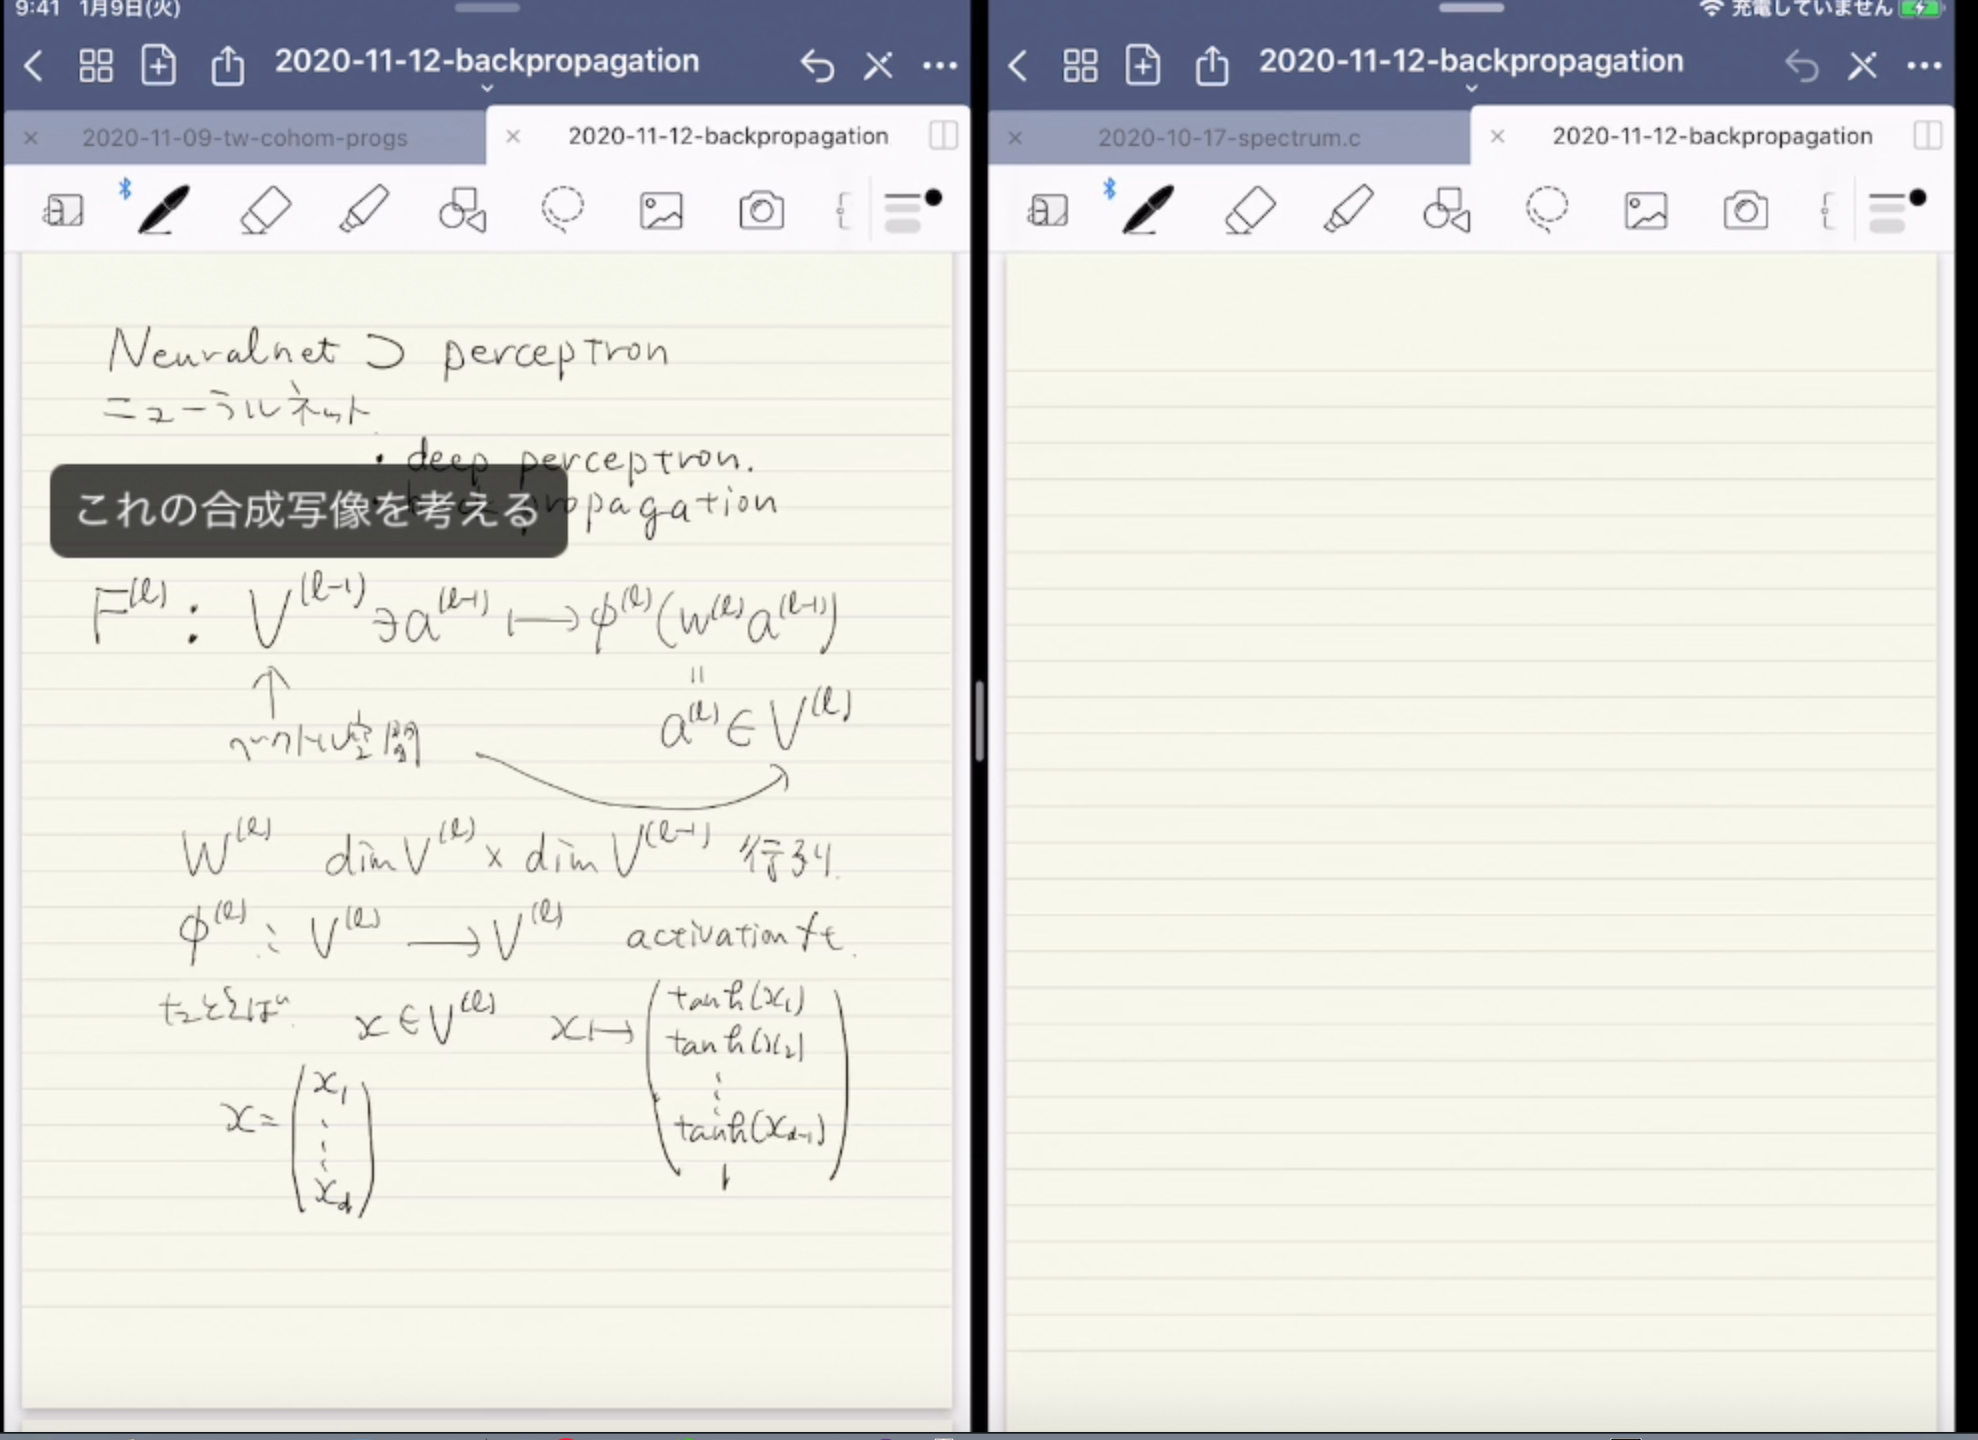 9:41 1月9日(火)
充電していません
2020-11-12-backpropagation
2020-11-09-tw-cohom-progs
2020-11-12-backpropagation
Neuralnet ⊃ perceptron
ニューラルネット
・deep perceptron.
propagation
これの合成写像を考える
F^(l) : V^(l-1) ∋ a^(l-1) ↦ φ^(l)(W^(l) a^(l-1))
↑ =
ベクトル空間 a^(l) ∈ V^(l)
W^(l) dim V^(l) × dim V^(l-1) 行列.
φ^(l) : V^(l) → V^(l) activation ft.
たとえば x ∈ V^(l) x ↦ ( tanh(x_1)
tanh(x_2)
⋮
tanh(x_d-1)
1 )
x = ( x_1
⋮
x_d )
2020-11-12-backpropagation
2020-10-17-spectrum.c
2020-11-12-backpropagation